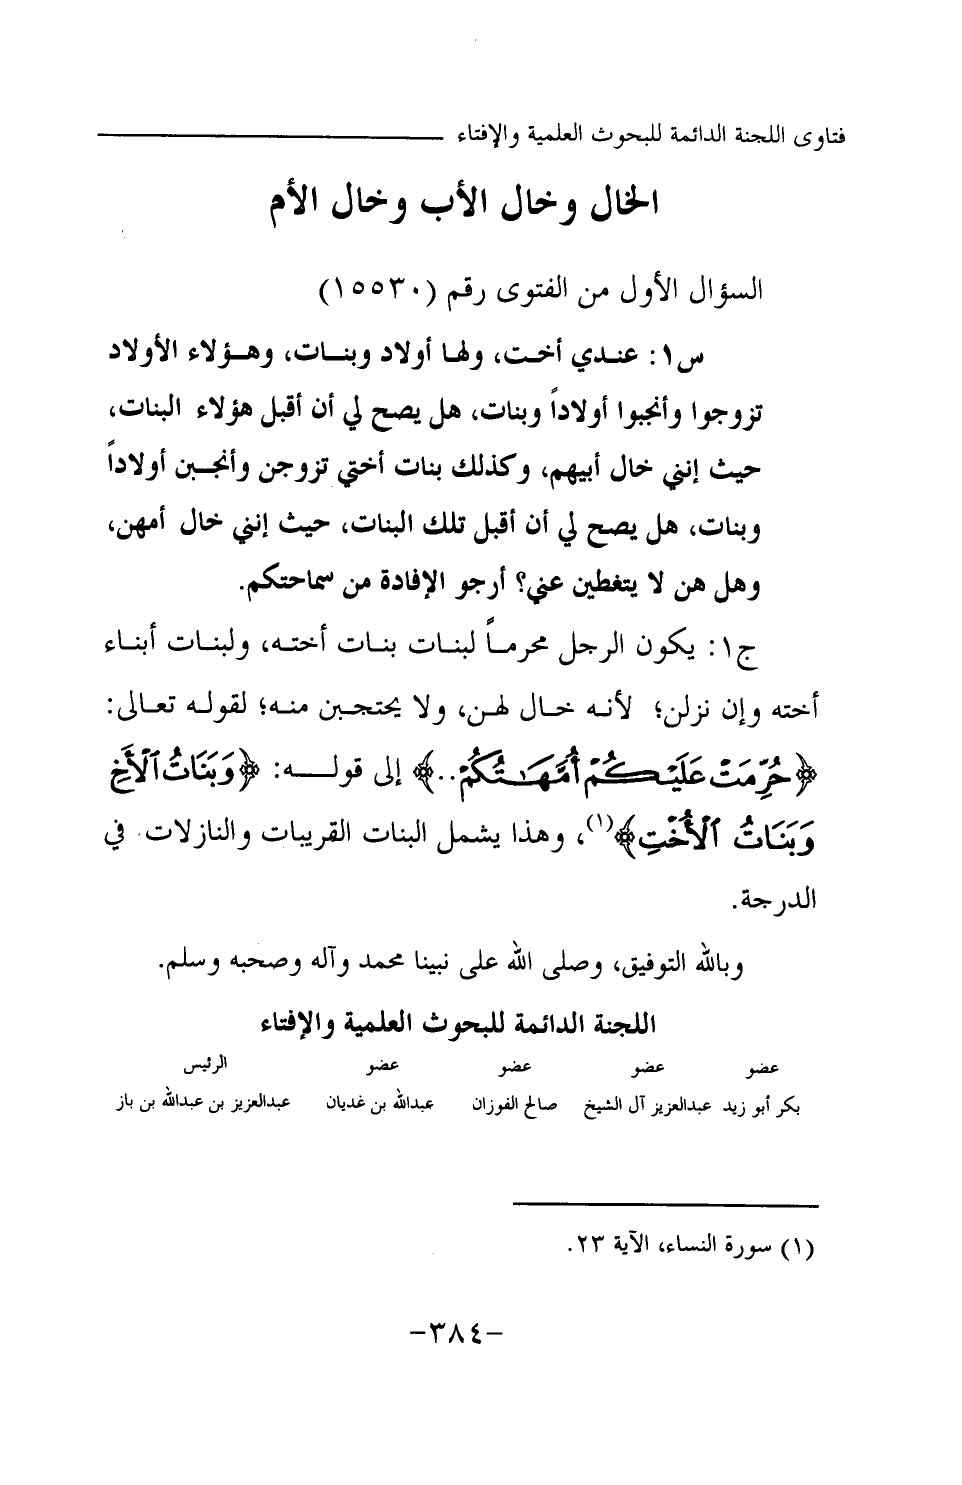 فتاوى اللجنة الدائمة للبحوث العلمية والإفتاء
الخال وخال الأب وخال الأم
السؤال الأول من الفتوى رقم (١٥٥٣٠)
س١: عندي أخت، ولها أولاد وبنات، وهؤلاء الأولاد
تزوجوا وأنجبوا أولاداً وبنات، هل يصح لي أن أقبل هؤلاء البنات،
حيث إنني خال أبيهم، وكذلك بنات أختي تزوجن وأنجبن أولاداً
وبنات، هل يصح لي أن أقبل تلك البنات، حيث إنني خال أمهن،
وهل هن لا يتغطين عني؟ أرجو الإفادة من سماحتكم.
ج١: يكون الرجل محرماً لبنات بنات أخته، ولبنات أبناء
أخته وإن نزلن؛ لأنه خال لهن، ولا يحتجبن منه؛ لقوله تعالى:
﴿حُرِّمَتْ عَلَيْكُمْ أُمَّهَٰتُكُمْ..﴾ إلى قوله: ﴿وَبَنَاتُ ٱلْأَخِ
وَبَنَاتُ ٱلْأُخْتِ﴾(١)، وهذا يشمل البنات القريبات والنازلات في
الدرجة.
وبالله التوفيق، وصلى الله على نبينا محمد وآله وصحبه وسلم.
اللجنة الدائمة للبحوث العلمية والإفتاء
عضو عضو عضو عضو الرئيس
بكر أبو زيد عبدالعزيز آل الشيخ صالح الفوزان عبدالله بن غديان عبدالعزيز بن عبدالله بن باز
(١) سورة النساء، الآية ٢٣.
-٣٨٤-